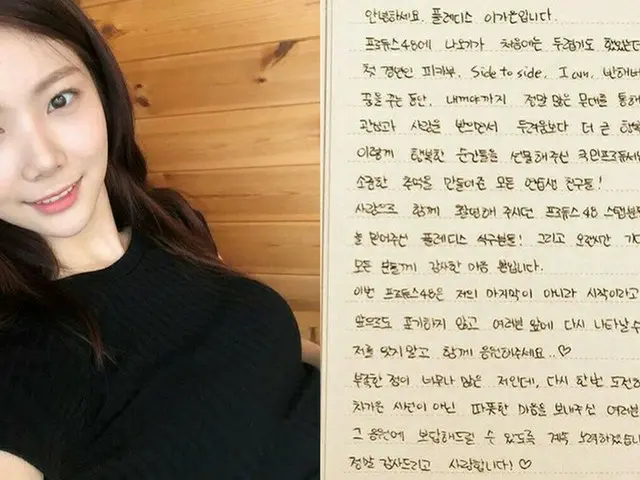 안녕하세요. 플레디스 이가은입니다.
프로듀스48에 나오기가 처음에는 두렵기도 했었는데
첫 경연인 피카부, Side to side, I am, 반해버
꿈을 꾸는 동안, 내꺼야까지 정말 많은 무대를 통해
관심과 사랑을 받으면서 두려움보다 더 큰 행복
이렇게 행복한 순간들을 선물해주신 국민프로듀서
소중한 추억을 만들어준 모든 연습생 친구들!
사랑으로 함께 촬영해 주시던 프로듀스 48 스텝분들
늘 믿어주신 플레디스 식구분들! 그리고 오랜시간 기다
모든 분들께 감사한 마음 뿐입니다.
이번 프로듀스48은 저의 마지막이 아니라 시작이라고
앞으로도 포기하지 않고 여러분 앞에 다시 나타날 수
저를 잊지말고 함께 응원해주세요..♡
부족한 점이 너무나 많은 저인데, 다시 한번 도전하
차가운 시선이 아닌 따뜻한 마음을 보내주신 여러분
그 응원에 보답해드릴 수 있도록 계속 노력하겠습니
정말 감사드리고 사랑합니다!♡